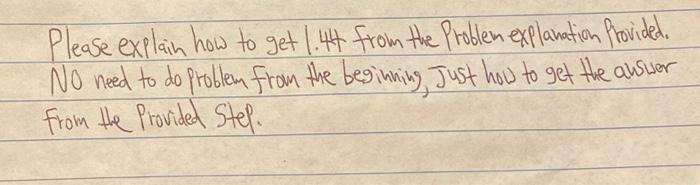 Please explain how to get 1.44 from the Problem explanation Provided.
NO need to do problem from the beginning, Just how to get the answer
from the Provided Step.